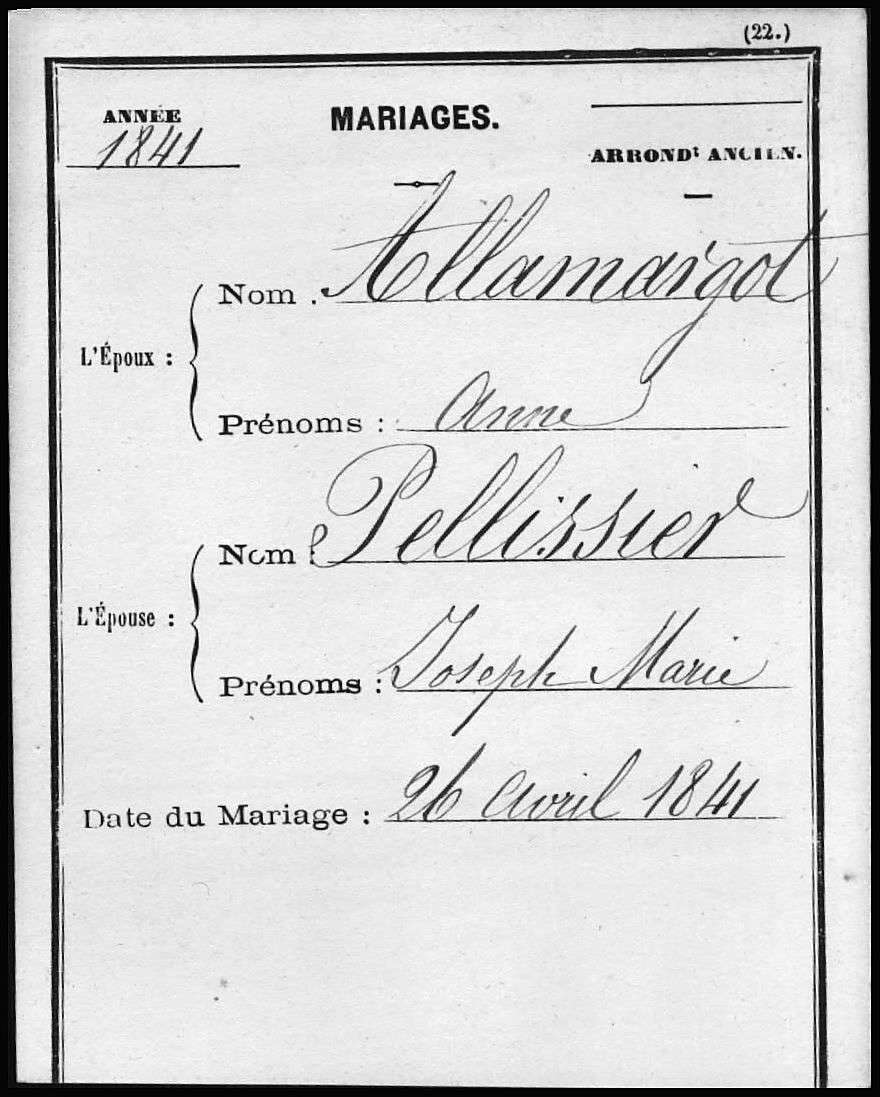 (22.)
ANNÉE
1841
MARIAGES.
ARRONDt ANCIEN.
L'Époux :
Nom : Allamargot
Prénoms : Anne
L'Épouse :
Nom : Pellissier
Prénoms : Joseph Marie
Date du Mariage : 26 Avril 1841